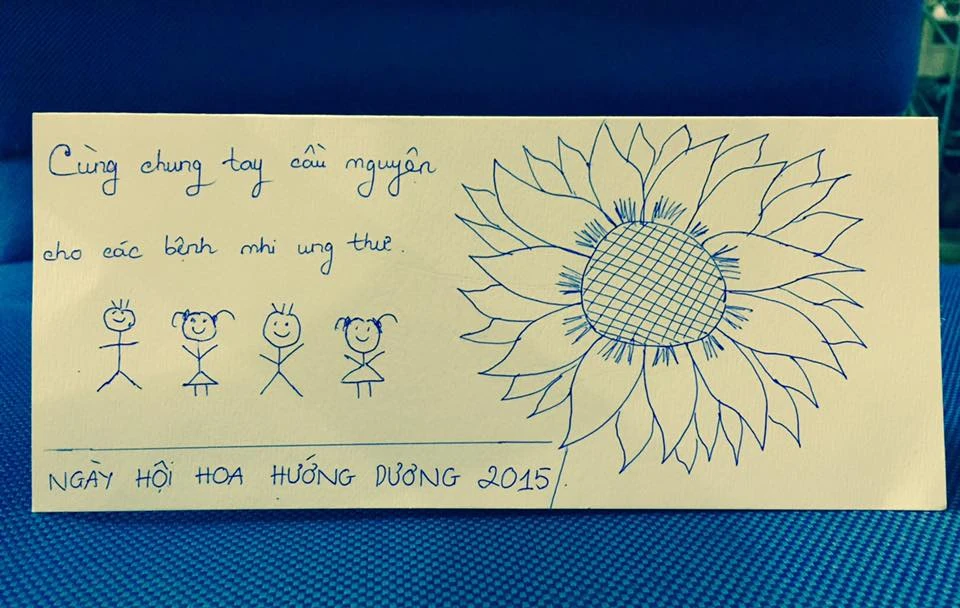 Cùng chung tay cầu nguyện
cho các bệnh nhi ung thư.
NGÀY HỘI HOA HƯỚNG DƯƠNG 2015